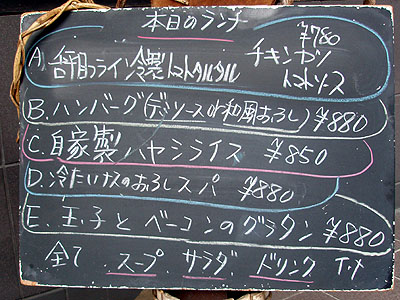 本日のランチ
¥780
A. チキンカツ
トマトソース
B. ハンバーグ(デミソースor和風おろし) ¥880
C. 自家製 ハヤシライス ¥850
D. 冷たいナスのおろしスパ ¥880
E. 玉子とベーコンのグラタン ¥880
全て スープ サラダ ドリンク 付